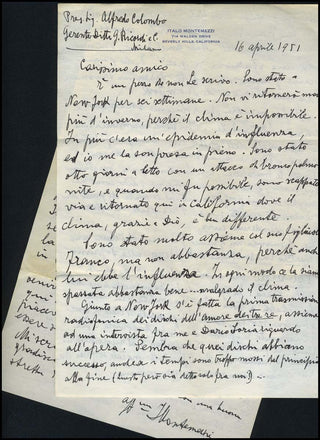 Preg. Sig. Alfredo Colombo
Gerente Ditta G. Ricordi e C.
Milano
ITALO MONTEMEZZI
BEVERLY HILLS, CALIFORNIA
16 aprile 1951
Carissimo amico
È un pezzo che non Le scrivo. Sono stato a
New York per sei settimane. Non vi ritornerò mai
più d'inverno, perchè il clima è impossibile.
In più c'era un'epidemia d'influenza,
ed io me la son presa in pieno. Sono stato
otto giorni a letto con un attacco di broncopolmo
nite, e quando mi fu possibile, sono scappato
via e ritornato qui in California dove il
clima, grazie a Dio, è ben differente.
Sono stato molto assieme col suo figliolo
Franco, ma non abbastanza, perchè anche
lui ebbe l'influenza. In ogni modo ce la siamo
spassata abbastanza bene... malgrado il clima.
Giunto a New York s'è fatta la prima trasmissione
radiofonica dei dischi dell'amore dei tre re, assieme
ad una intervista fra me e Dario Soria riguardo
all'opera. Sembra che quei dischi abbiano
successo, anche se i tempi sono troppo mossi dal principio
alla fine (questo però sia detto solo fra noi)
una buona
Montemezzi